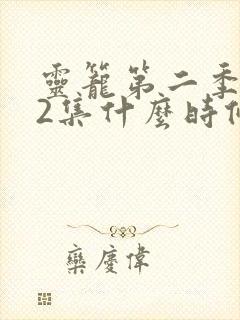 靈籠第二季
2集什麼時
欒慶偉